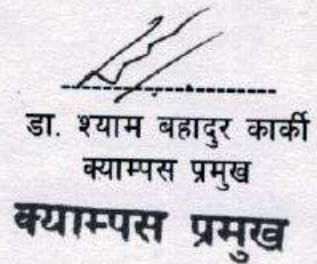 डा. श्याम बहादुर कार्की
क्याम्पस प्रमुख
क्याम्पस प्रमुख